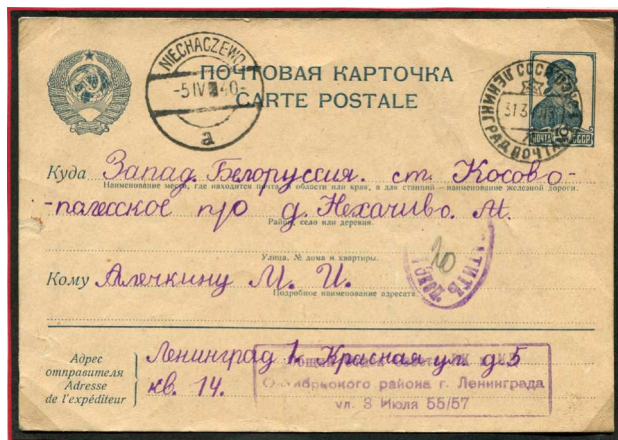 NIECHACZEWO
-5 IV 40-
a
ПОЧТОВАЯ КАРТОЧКА
CARTE POSTALE
ЛЕНИНГРАД ПОЧТАМТ
СССР
31 3
Куда Запад. Белоруссия. ст. Косово-
Наименование места, где находится почта, и области или края, а для станций—наименование железной дороги.
-полесское п/о д. Нехачиво. М.
Район, село или деревня.
Улица, № дома и квартиры.
20
Кому Алечкину М. И.
Подробное наименование адресата.
Адрес отправителя
Adresse de l'expéditeur
Ленинград 1. Красная ул. д. 5
кв. 14.
Октябрьского района г. Ленинграда
ул. 3 Июля 55/57